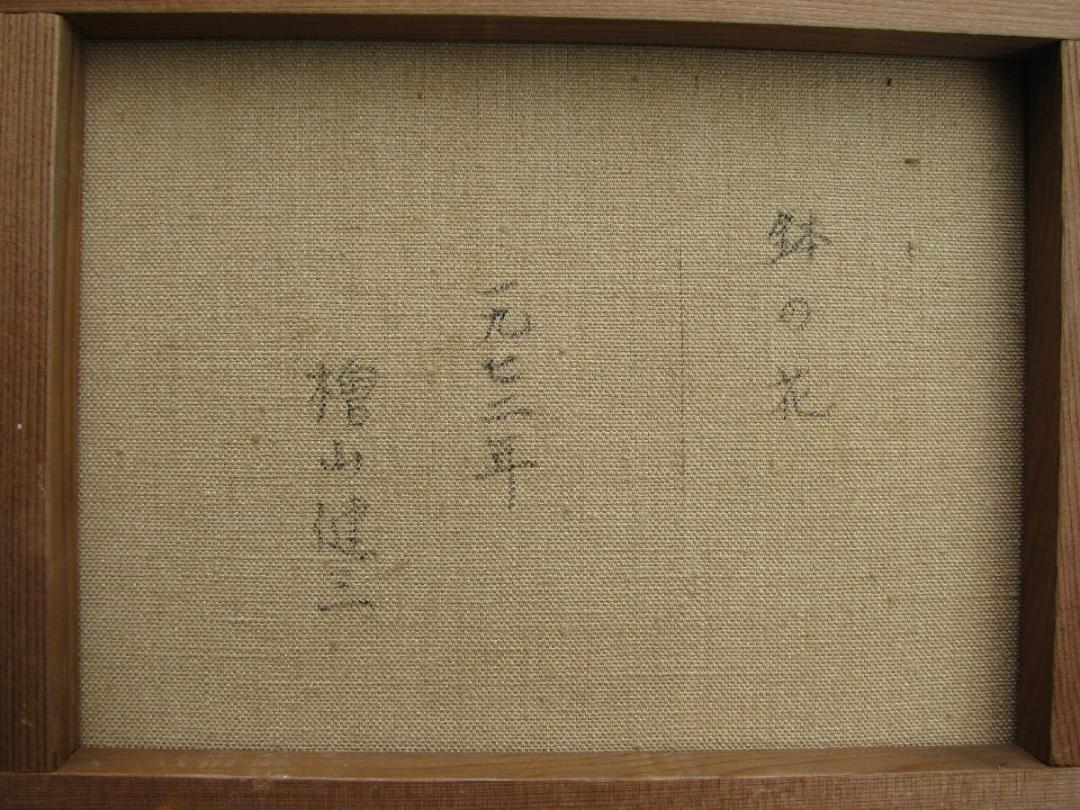 鉢の花
一九七二年
檜山健三